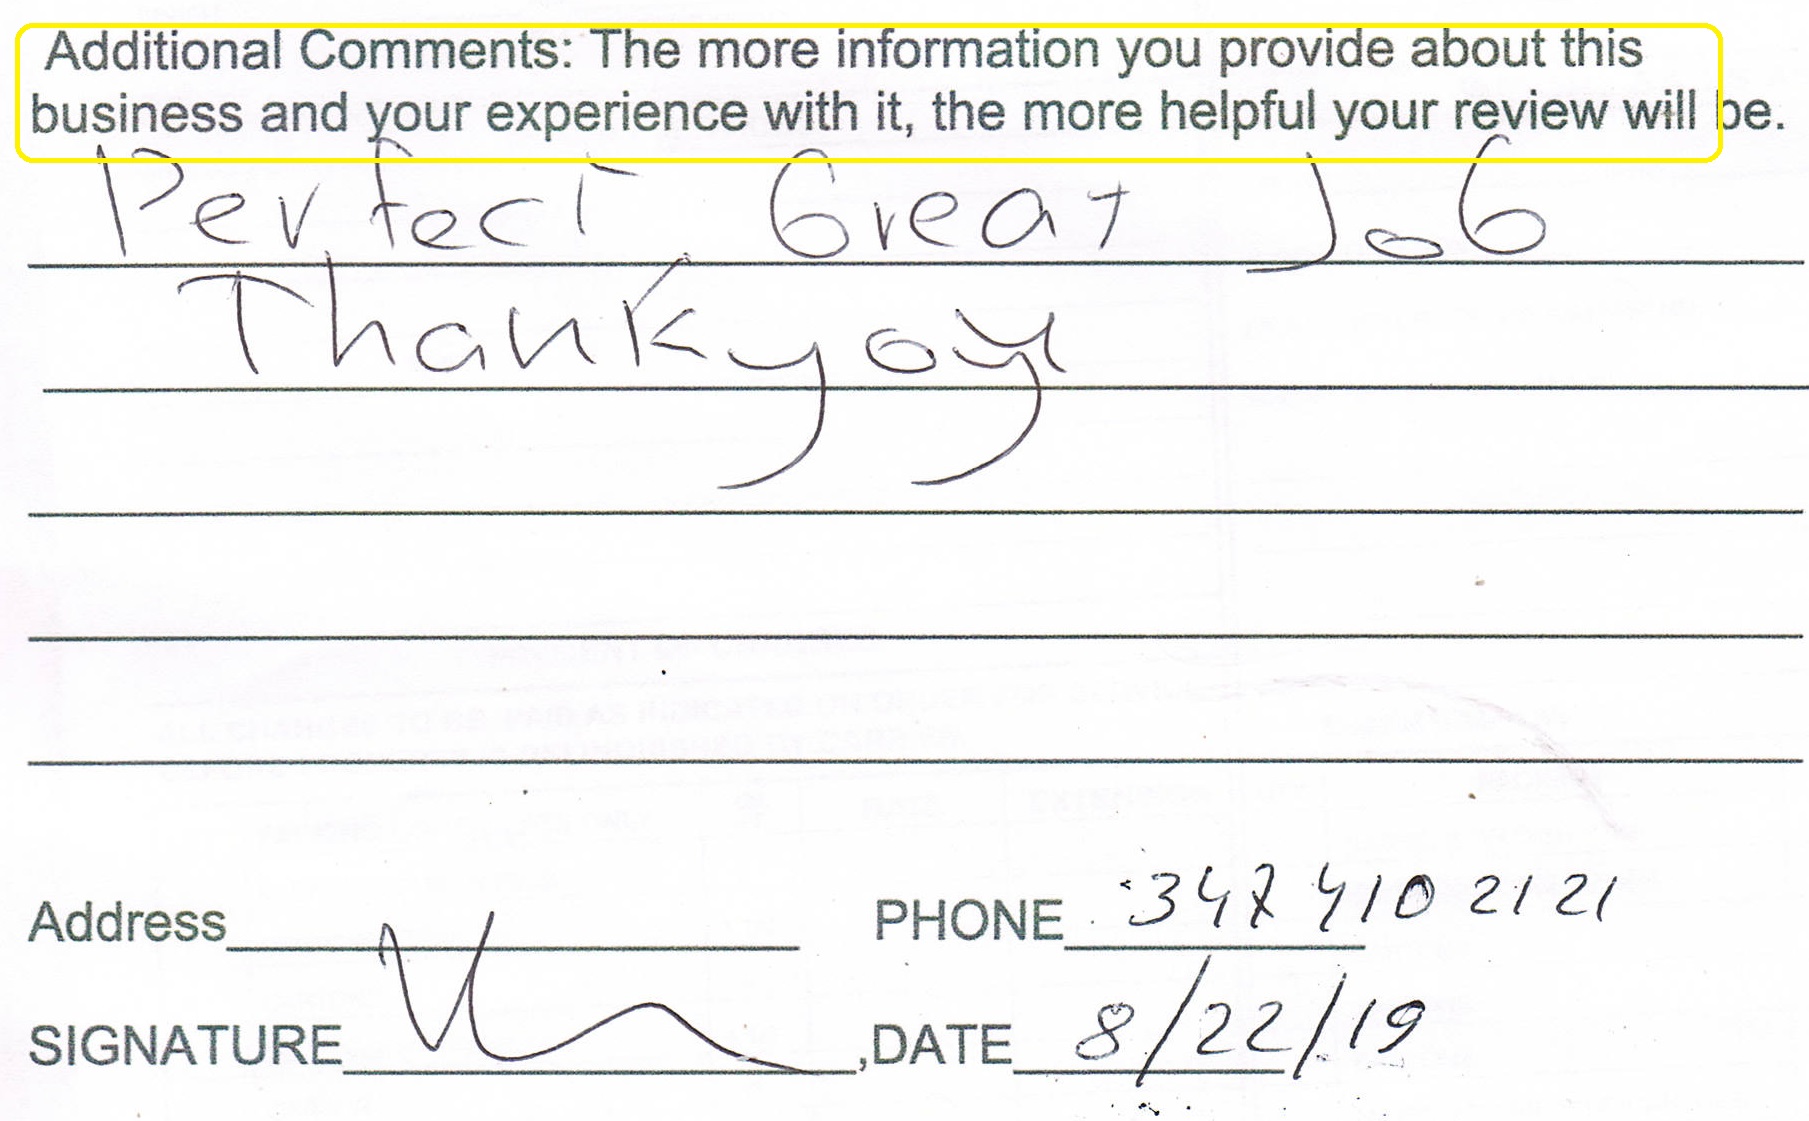 Additional Comments: The more information you provide about this
business and your experience with it, the more helpful your review will be.
Perfect. Great Job
Thank you
Address PHONE 347 410 2121
SIGNATURE ,DATE 8/22/19